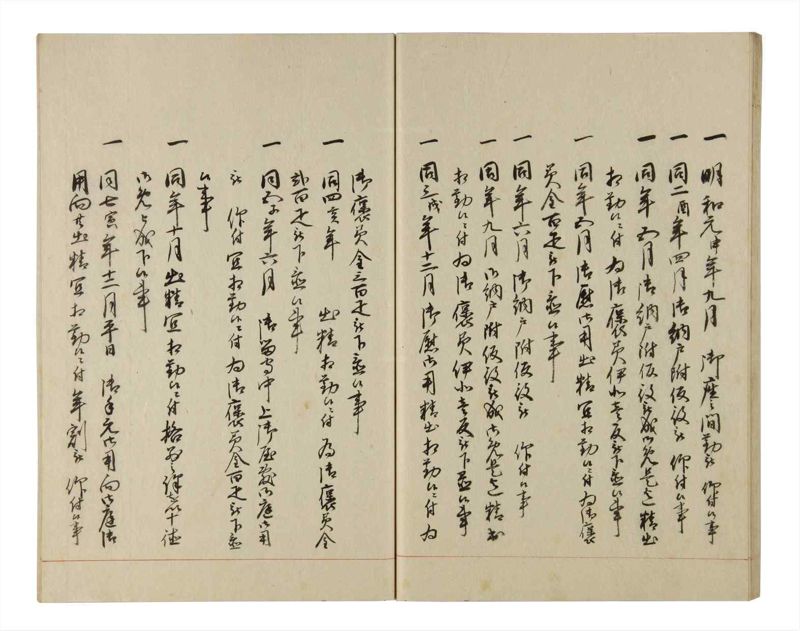 一 明和元申年九月 御座之間勤被 仰付候事
一 同二酉年四月御納戸附仮役被 仰付候事
一 同年五月御納戸附仮役被成御免是迄精出
相勤候ニ付為御褒美伊 被下置候事
一 同年五月御慰御用出精 相勤候ニ付為御褒
美金百疋被下置候事
一 同年六月御納戸附仮役被 仰付候事
一 同年九月御納戸附仮役被成御免是迄精出
相勤候ニ付為御褒美伊 被下置候事
一 同三戌年十二月御慰御用精出相勤候ニ付為
御褒美金三百疋被下置候事
一 同四亥年 出精相勤候ニ付為御褒美金
弐百疋被下置候事
一 同五子年六月 御留守中上御 御庭御用
被 仰付 相勤候ニ付為御褒美金百疋被下置
候事
一 同年十月出精 相勤候ニ付格 十徳
御免被成下候事
一 同七寅年十二月 日 御手元御用向御庭御
用向共出精 相勤候ニ付年 被 仰付候事